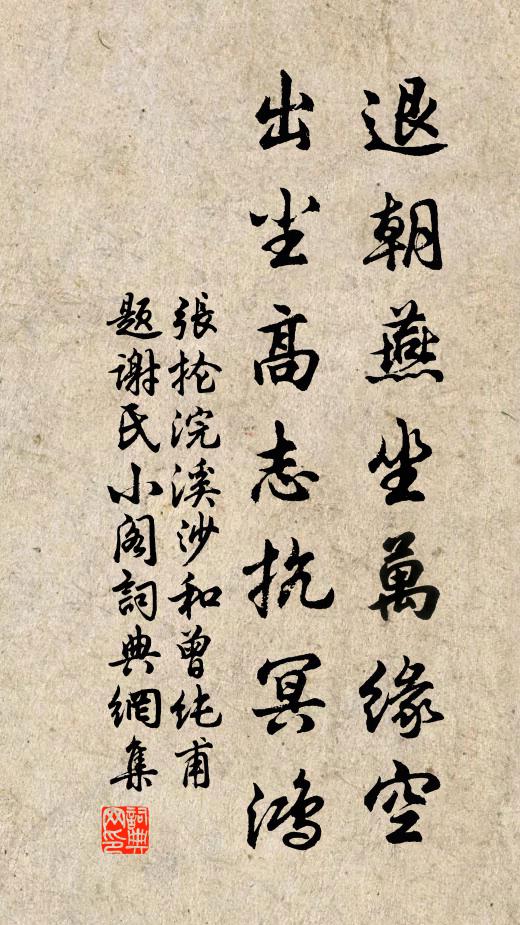 退朝燕坐萬緣空
出尘高志抗冥鴻
張抡浣溪沙和曾纯甫
题謝氏小阁詞典網集
詞典
网印